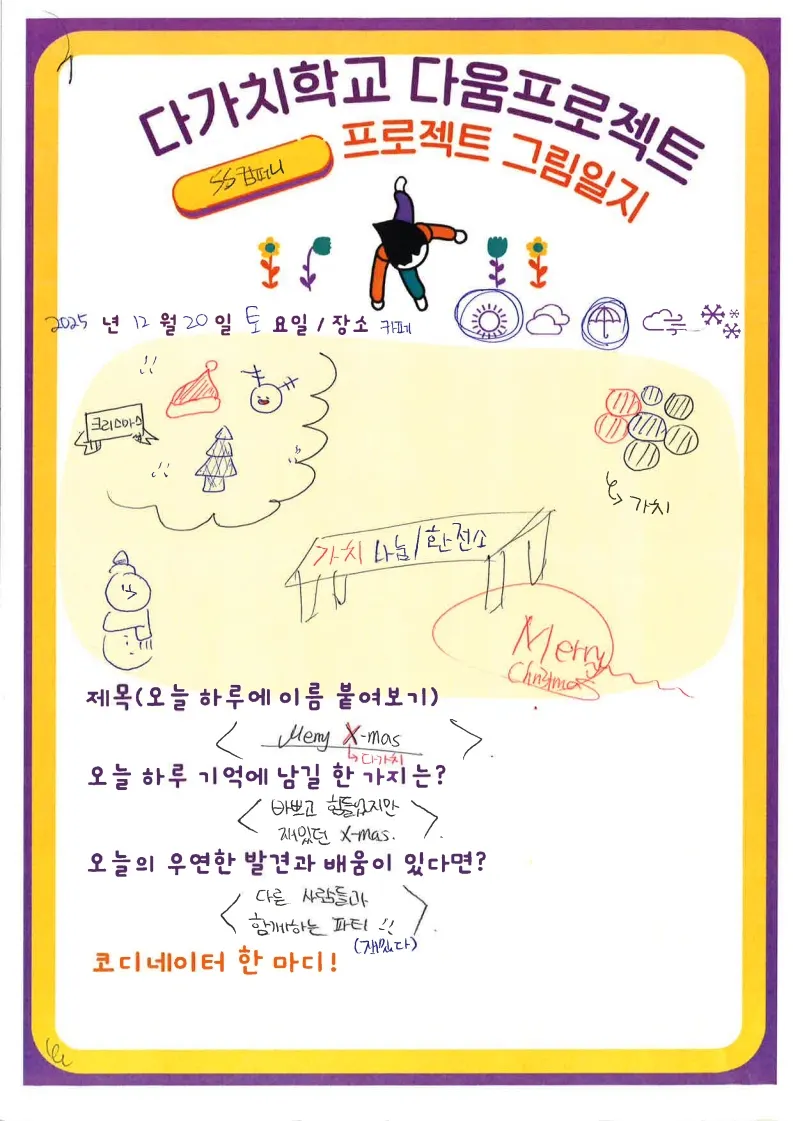 다가치학교 다움프로젝트
프로젝트 그림일지
SS컴퍼니
2025 년 12 월 20 일 토 요일 / 장소 카페
크리스마스
가치
가치 나눔/환전소
Merry
Christmas
제목(오늘 하루에 이름 붙여보기)
< Merry X-mas >.
다가치
오늘 하루 기억에 남길 한 가지는?
< 바쁘고 힘들었지만
재밌던 X-mas. >.
오늘의 우연한 발견과 배움이 있다면?
< 다른 사람들과
함께하는 파티 !! >.
(재밌다)
코디네이터 한 마디!